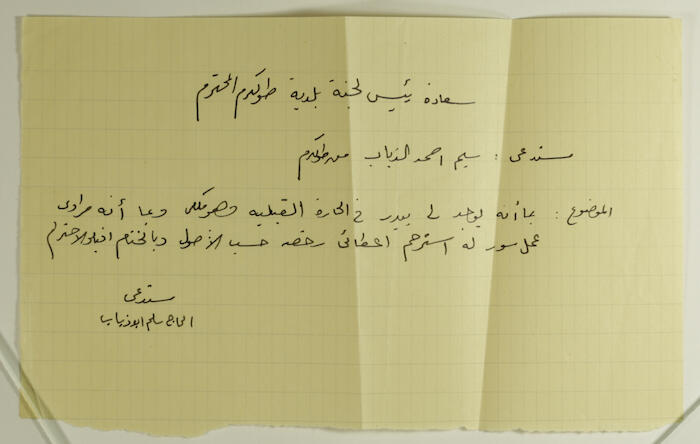 سعادة رئيس لجنة بلدية طولكرم المحترم
مستدعي : سليم احمد الذياب من طولكرم
الموضوع : بما أنه يوجد لي بيدر في الحارة القبليه وهو ملكي وبما أنه مرادي
عمل سور له استرحم اعطائي رخصه حسب الأصول وبالختام اقبلو الاحترام
مستدعي
الحاج سليم ابو ذياب